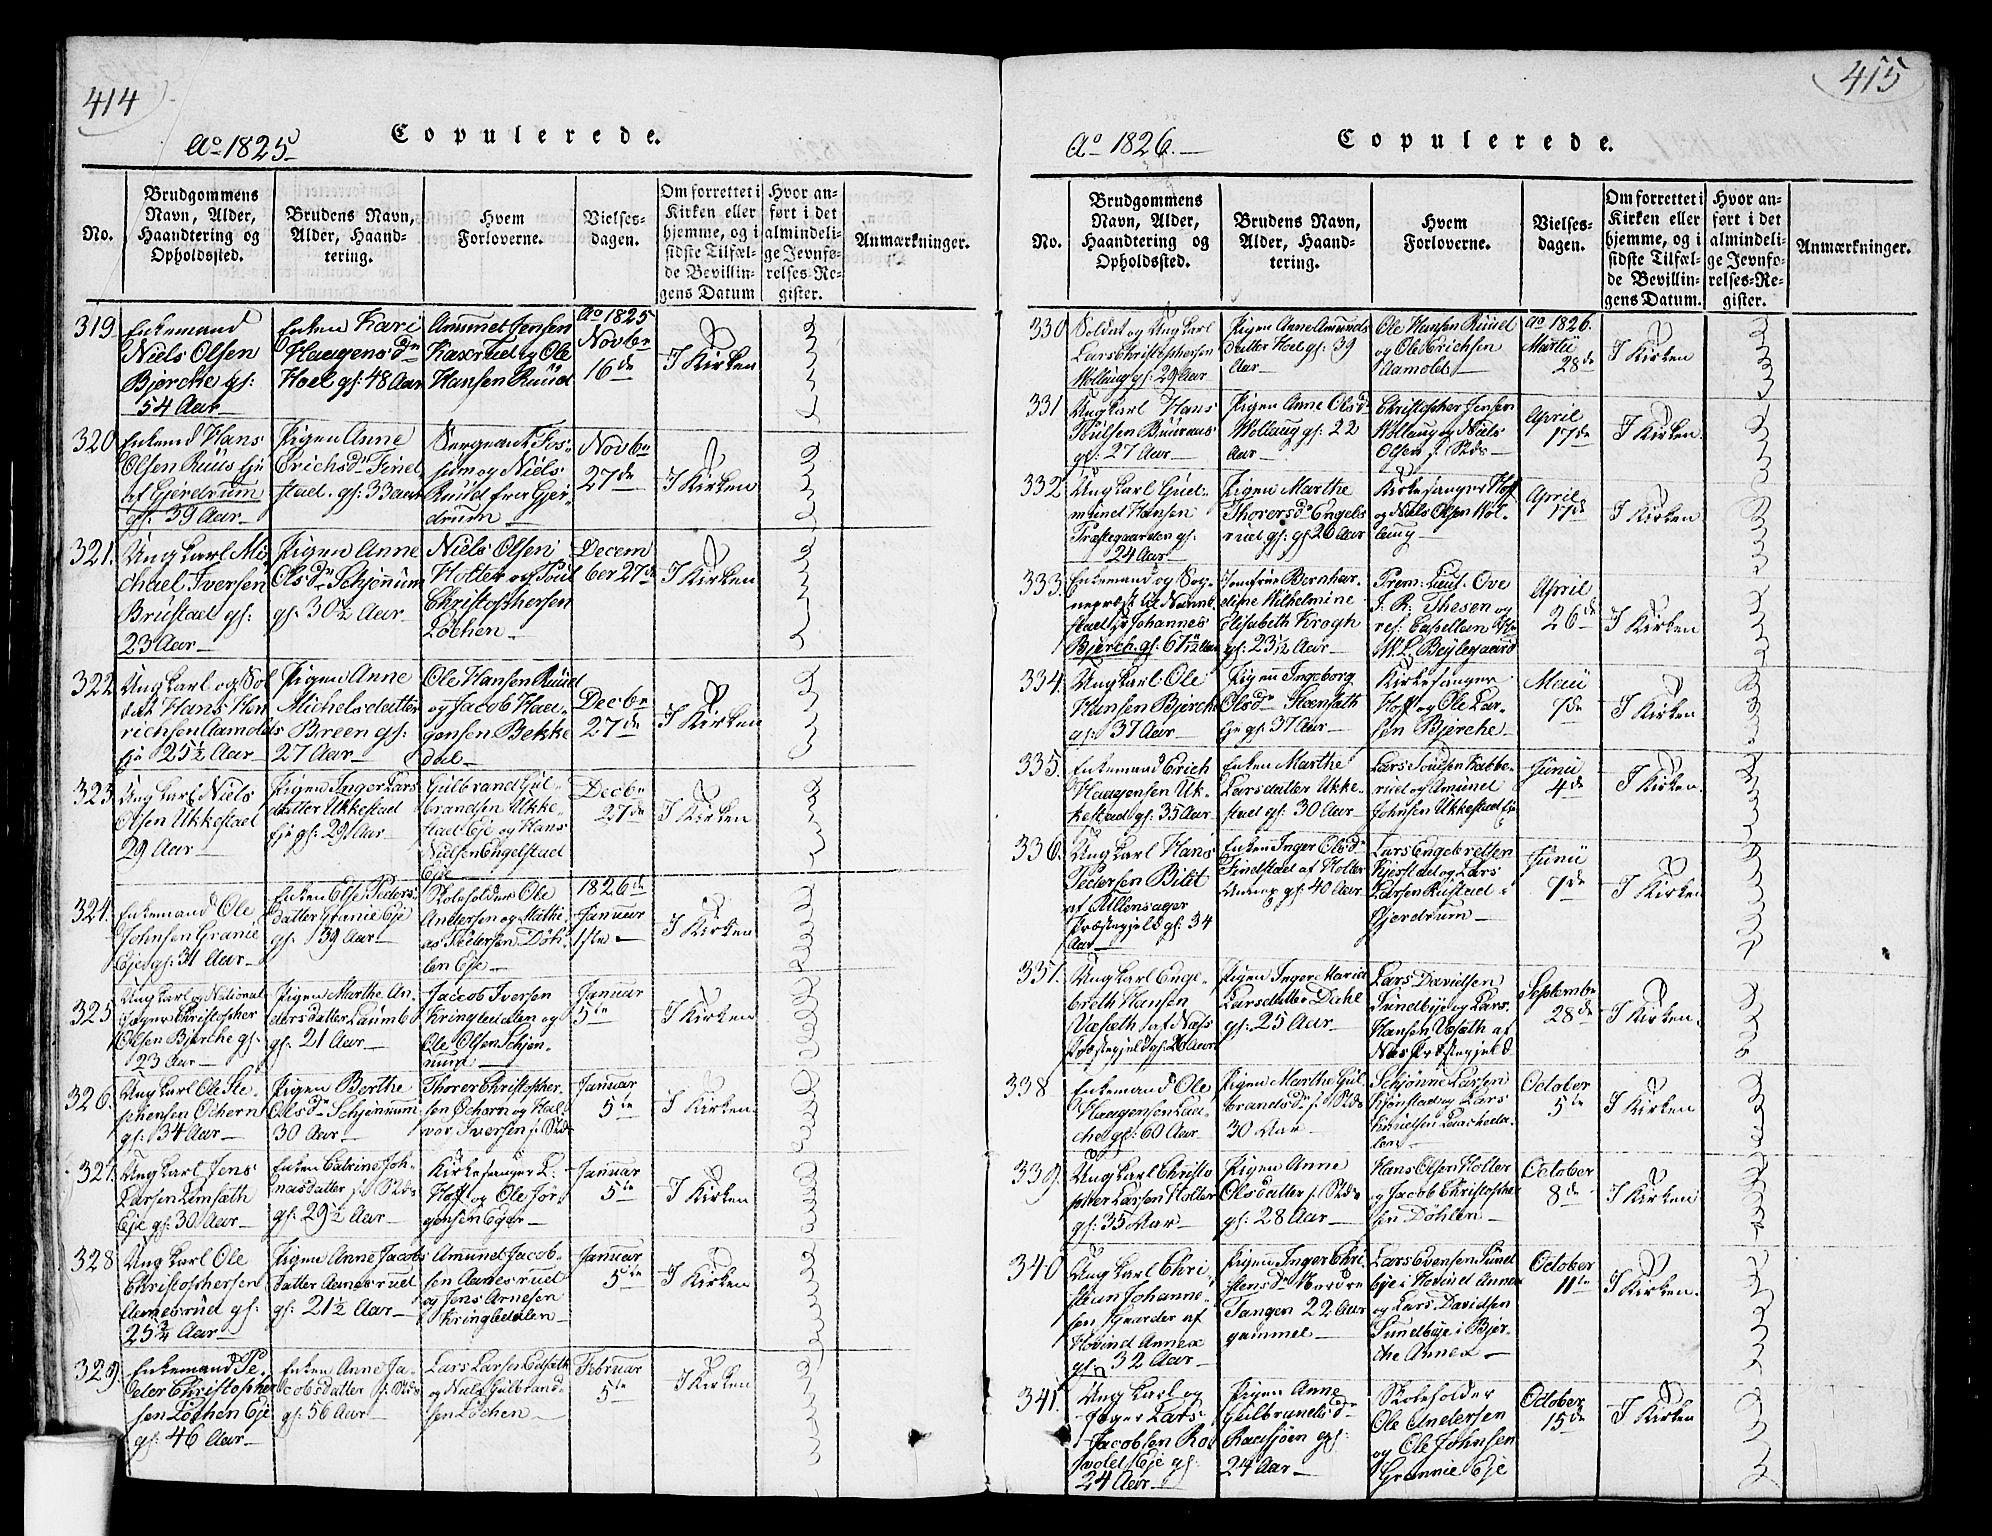 414
Ao 1825
Copulerede.
No.
Brudgommens Navn, Alder, Haandtering og Opholdssted.
Brudens Navn, Alder, Haandtering.
Hvem Forloverne.
Vielses-dagen.
Om forrettet i Kirken eller hjemme, og i sidste Tilfælde Bevillingens Datum
Hvor anført i det almindelige Jevnførelses-Register.
Anmærkninger.
319
Enkemand
Niels Olsen
Bjerche gs:
54 Aar
Enken Kari
Haagensdr
Hoel gs: 48 Aar
Amund Jensen
Kaxrud og Ole
Hansen Ruud
Ao 1825
Novbr
16de
I Kirken
320
Enkemd Hans
Olsen Ruus
af Gjerdrum
gs: 39 Aar
Pigen Anne
Erichsdr Findstad
gs: 33 aar
Sergeant Fossum og Niels
Ruud fra Gjerdrum
Novbr
27de
I Kirken
321
Ungkarl Michael Iversen
Brustad gs:
23 Aar
Pigen Anne
Olsdr Schjønum
gs: 30½ Aar
Niels Olsen
Holter og Poul
Christophersen
Løchen
December 27de
I Kirken
322
Ungkarl og Soldat Hans Henrichsen Aamolds
Eje 25½ Aar
Pigen Anne
Michelsdatter
Breen gs:
27 Aar
Ole Hansen Ruud
og Jacob Haagensen Bekkedal
Decbr
27de
I Kirken
323
Ungkarl Niels
Olsen Ukkestad
29 Aar
Pigen Inger Larsdatter Ukkestad
Eje gs: 29 Aar
Gulbrand Gulbrandsen Ukkestad Eje og Hans
Nielsen Engelstad
Eje
Decbr
27de
I Kirken
324
Enkemand Ole
Johnsen Granie
Eje gs: 31 Aar
Enken Else Pedersdatter Granie Eje
gs: 39 Aar
Skoleholder Ole
Andersen og Mathias Pedersen Döhlen Eje
1826
Januar
1ste
I Kirken
325
Ungkarl og National
Jæger Christopher
Olsen Bjerche gs:
23 Aar
Pigen Marthe Andersdatter Laumb
gs: 21 Aar
Jacob Iversen
Kringledalen og
Ole Olsen Schjønnum
Januar
5te
I Kirken
326
Ungkarl Ole Stephensen Ochern
gs: 34 Aar
Pigen Berthe
Olsdr Schjønum
30 Aar
Thorer Christophersen Ochern og Halvor Iversen
Januar
5te
I Kirken
327
Ungkarl Jens
Larsen
Eje gs: 30 Aar
Enken Catrine Johnasdatter i: Stds
gs: 29½ Aar
Kirkesanger L:
Hoff og Ole Jørgensen Eger
Januar
5te
I Kirken
328
Ungkarl Ole
Christophersen
Aanesrud gs:
25¾ Aar
Pigen Anne Jacobsdatter Aanesrud
gs: 21½ Aar
Amund Jacobsen Aanesrud
og Jens Arnesen
Kringledalen
Januar
5te
I Kirken
329
Enkemand Peder Christophersen Løchen Eje
gs: 46 Aar
Enken Anne Jacobsdatter i: Stds
gs: 56 Aar
Lars Larsen
og Niels Gulbrandsen Løchen
Februar
5te
I Kirken
415
Ao 1826.
Copulerede.
No.
Brudgommens Navn, Alder, Haandtering og Opholdssted.
Brudens Navn, Alder, Haandtering.
Hvem Forloverne.
Vielses-dagen.
Om forrettet i Kirken eller hjemme, og i sidste Tilfælde Bevillingens Datum.
Hvor anført i det almindelige Jevnførelses-Register.
Anmærkninger.
330
Soldat og Ungkarl
Lars Christophersen
Wollaug gs: 29 Aar
Pigen Anne Amundsdatter Hoel gs: 39
Aar
Ole Hansen Ruud
og Ole Erichsen
Aamold
Ao 1826.
Martii
28de
I Kirken
331
Ungkarl Hans
Poulsen Buuraas
gs: 27 Aar
Pigen Anne Olsdr
Wollaug gs: 22
Aar
Christopher Jensen
Wollaug og Niels
Olsen i: Stds
April
17de
I Kirken
332
Ungkarl Gudmund Hansen
Præstegaarden gs.
24 Aar
Pigen Marthe
Thoresdr Engelsrud gs: 26 Aar
Kirkesanger Hoff
og Niels Olsen Wollaug
April
17de
I Kirken
333
Enkemand og Sognepræst til Nannestad Hr Johannes
Bjerch, gs: 61 Aar
Jomfrue Bernhardine Wilhelmine
Elisabeth Krogh
gs: 23 Aar
Prem: Leut. Ove
J. R: Thesen og
res: Capellan Hr
W. L. Bejlegaard
April
26de
I Kirken
334
Ungkarl Ole
Hansen Bjerche
gs: 37 Aar
Pigen Ingeborg
Olsdr Steenseth
Eje gs: 37 Aar
Kirkesanger
Hoff og Ole Larsen Bjerche
Maii
7de
I Kirken
335
Enkemand Erich
Haagensen Ukkestad gs: 35 Aar
Enken Marthe
Larsdatter Ukkestad gs: 30 Aar
Lars Poulsen Kabberud og Amund
Johnsen Ukkestad Eje
Junii
4de
I Kirken
336
Ungkarl Hans
Pedersen Bilit
af Ullensager
Præstegjeld gs: 34
Aar
Enken Inger Olsdr
Findstad af Holter
Annex gs: 40 Aar
Lars Engebretsen
Kjerstad og Lars
Larsen Rustad i
Gjerdrum
Junii
7de
I Kirken
337
Ungkarl Engebreth Hansen
Væseth af Næss
Præstegjeld gs: 26 Aar
Pigen Inger Maria
Larsdatter Dahl
gs: 25 Aar
Lars Davidsen
Sundbye og Lars
Hansen Væseth af
Nes Præstegjeld
Septembr
28de
I Kirken
338
Enkemand Ole
Haagensen
gs: 60 Aar
Pigen Marthe Gulbrandsdr i: Stds
30 Aar
Schjønne Larsen
Kjønstad og Lars
October
5te
I Kirken
339
Ungkarl Christopher Larsen Holter
gs: 35 Aar
Pigen Anne
Olsdatter i: Stds
gs: 28 Aar
Hans Olsen Holter
og Jacob Christophersen Döhlen
October
8de
I Kirken
340
Ungkarl Christian Johannesen Gaarder af
Hovind Annex
gs: 32 Aar
Pigen Inger Christensdr Nordre
Tangen 22 Aar
gammel
Lars Evensen Sundbye i Hovind Annex
og Lars Davidsen
Sundbye i Bjerche Annex
October
11te
I Kirken
341
Ungkarl og
Jæger Lars
Jacobsen
Eje gs:
24 Aar
Pigen Anne
Gulbrandsdr
Raasjøen gs:
24 Aar
Skoleholder
Ole Andersen
og Ole Johnsen
Grannie Eje
October
15de
I Kirken